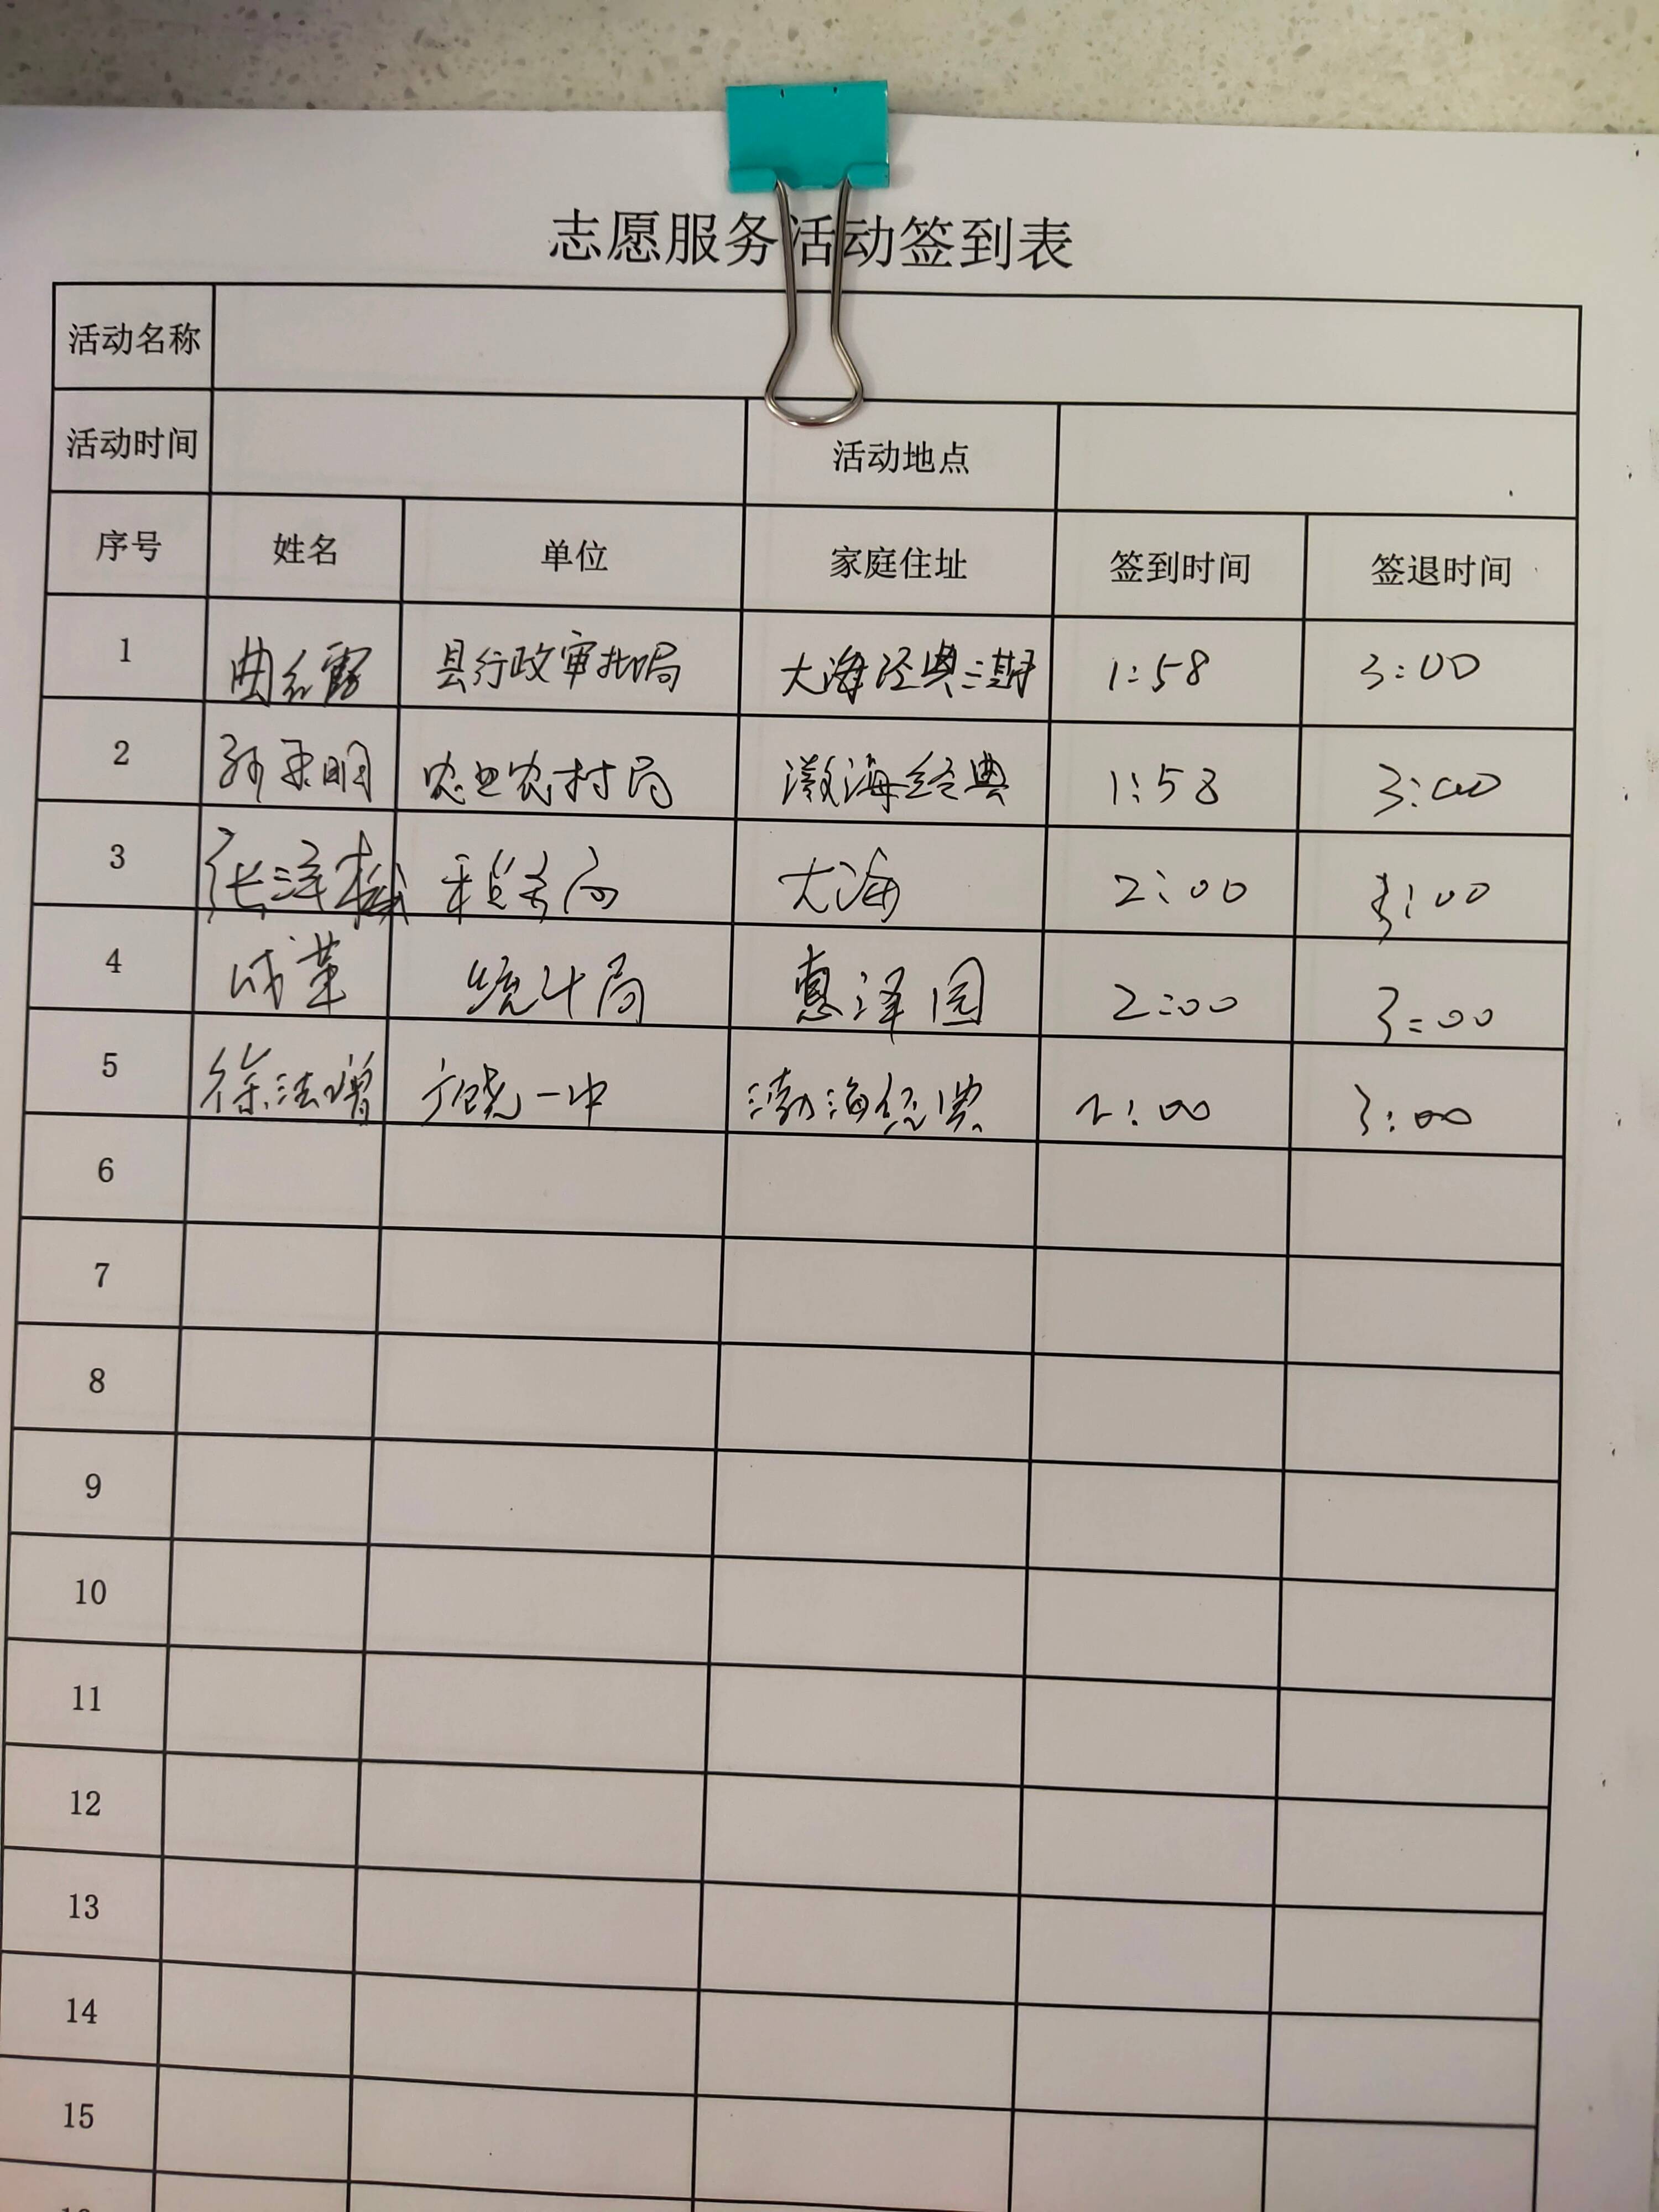 志愿服务活动签到表
活动名称
活动时间 活动地点
序号 姓名 单位 家庭住址 签到时间 签退时间
1 曲红霞 县行政审批局 大海经典三期 1:58 3:00
2 孙 明 农业农村局 渤海经典 1:58 3:00
3 张洋 税务局 大海 2:00 3:00
4 统计局 惠泽园 2:00 3:00
5 徐法增 广饶一中 渤海经典 2:00 3:00
6
7
8
9
10
11
12
13
14
15